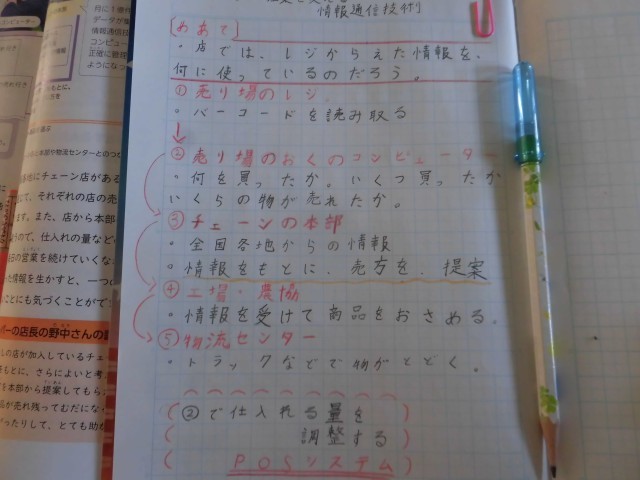 情報通信技術
めあて
・店では、レジからえた情報を、
何に使っているのだろう。
①売り場のレジ
・バーコードを読み取る
②売り場のおくのコンピューター
・何を買ったか。いくつ買ったか
いくらの物が売れたか。
③チェーンの本部
・全国各地からの情報
・情報をもとに、売方を、提案
④工場・農協
・情報を受けて商品をおさめる。
⑤物流センター
・トラックなどで物がとどく。
②で仕入れる量を
調整する
POSシステム
データが集
情報通信技
コンピュー
正確に管理
ようになっ
本部や物流センターとのつな
にチェーン店がある
て、それぞれの店の売
ます。また、店から本部
ので、仕入れの量など
の営業を続けていくな
た情報を生かすと、一つ
ことにも気づくことがで
パーの店長の野中さんの
の店が加入しているチェ
もとに、さらによいと考
を本部から提案してもら
品が売れ残ってむだにな
がったりして、とても助